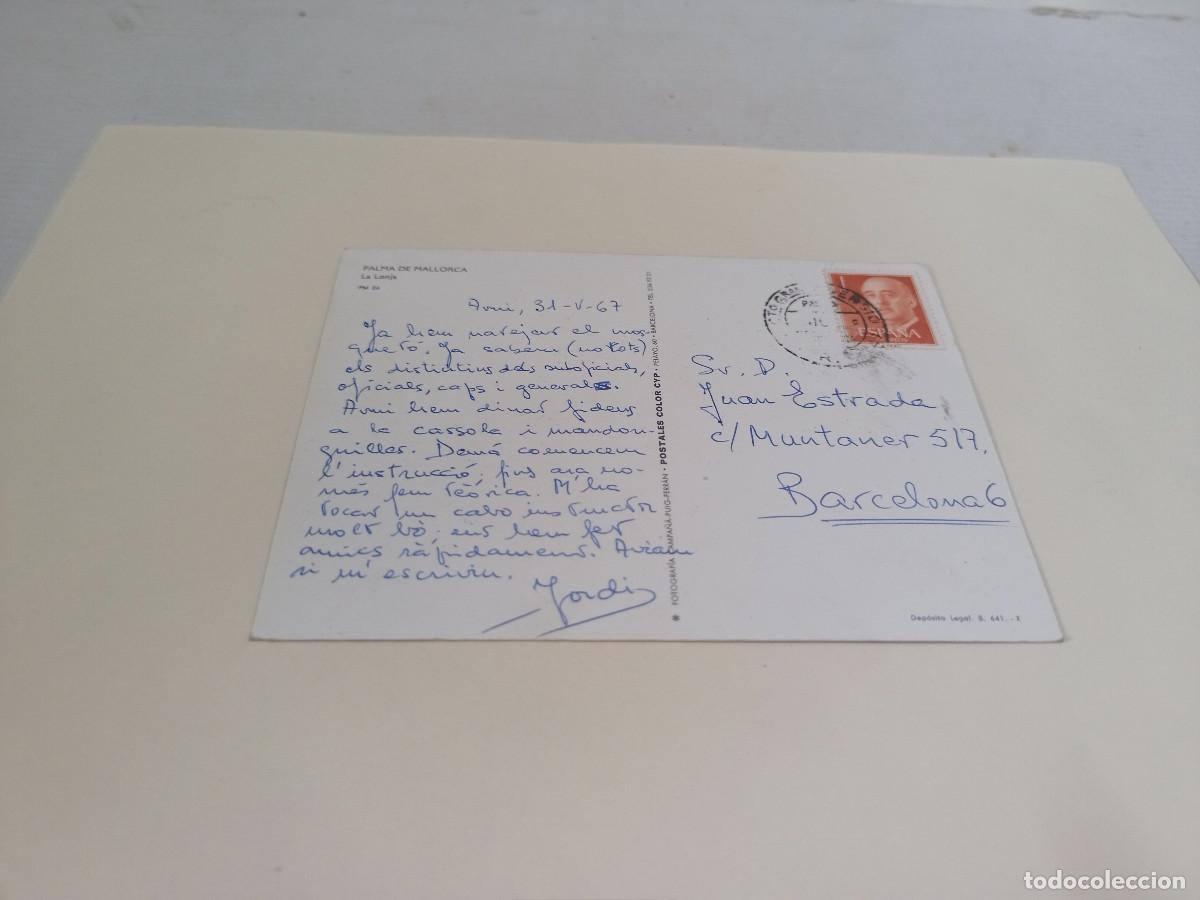 PALMA DE MALLORCA
La Lonja
Avui, 31-V-67
Ja hem netejar el mos-
quetó. Ja sabem (no tots)
els distintius dels suboficials,
oficials, caps i generals.
Avui hem dinat fideus
a la cassola i mandon-
guilles. Demà comencem
l'instrucció, fins ara no-
més fem teòrica. M'ha
tocat un cabo instructor
molt bò, ens hem fet
amics ràpidament. Aviam
si m'escriviu.
Jordi
FOTOGRAFIA CAMPAÑÁ-PUIG-FERRÁN - POSTALES COLOR CYP - PELAYO, 60 - BARCELONA - TEL.
ESPAÑA
Sr. D.
Juan Estrada
c/ Muntaner 517.
Barcelona 6
Depósito Legal. B. 641. - X
todocoleccion